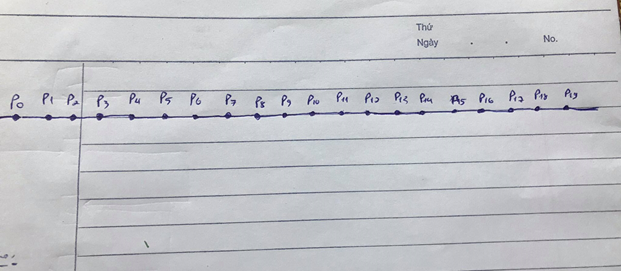 Thứ
Ngày . . No.
P0 P1 P2 P3 P4 P5 P6 P7 P8 P9 P10 P11 P12 P13 P14 P15 P16 P17 P18 P19